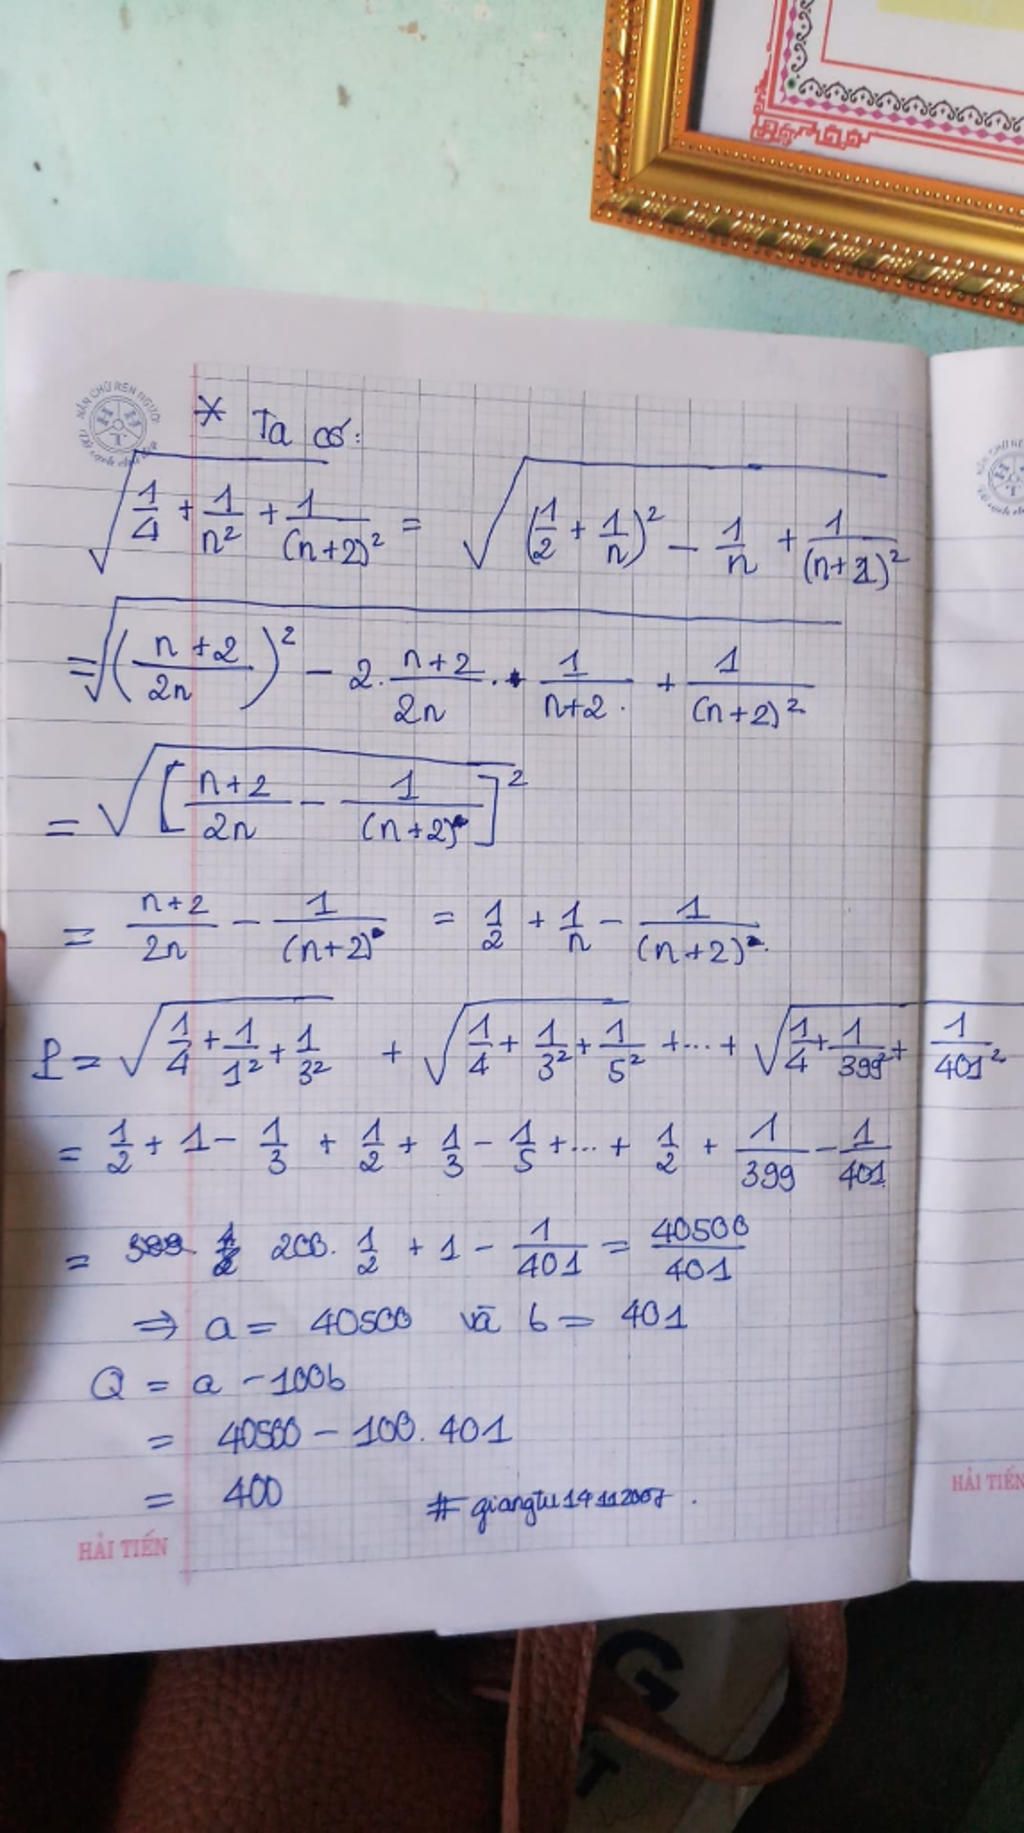 NẮN CHỮ RÈN NGƯỜI
* Ta có:
√(1/4 + 1/n² + 1/(n+2)²) = √((1/2 + 1/n)² - 1/n + 1/(n+2)²)
= √(((n+2)/2n)² - 2. (n+2)/2n . 1/(n+2) + 1/(n+2)²)
= √([(n+2)/2n - 1/(n+2)]²)
= (n+2)/2n - 1/(n+2) = 1/2 + 1/n - 1/(n+2).
P = √(1/4 + 1/1² + 1/3²) + √(1/4 + 1/3² + 1/5²) + ... + √(1/4 + 1/399² + 1/401²)
= 1/2 + 1 - 1/3 + 1/2 + 1/3 - 1/5 + ... + 1/2 + 1/399 - 1/401
= 200. 1/2 + 1 - 1/401 = 40500/401
⇒ a = 40500 và b = 401
Q = a - 100b
= 40500 - 100. 401
= 400
#giangtu14112007.
HẢI TIẾN
HẢI TIẾN